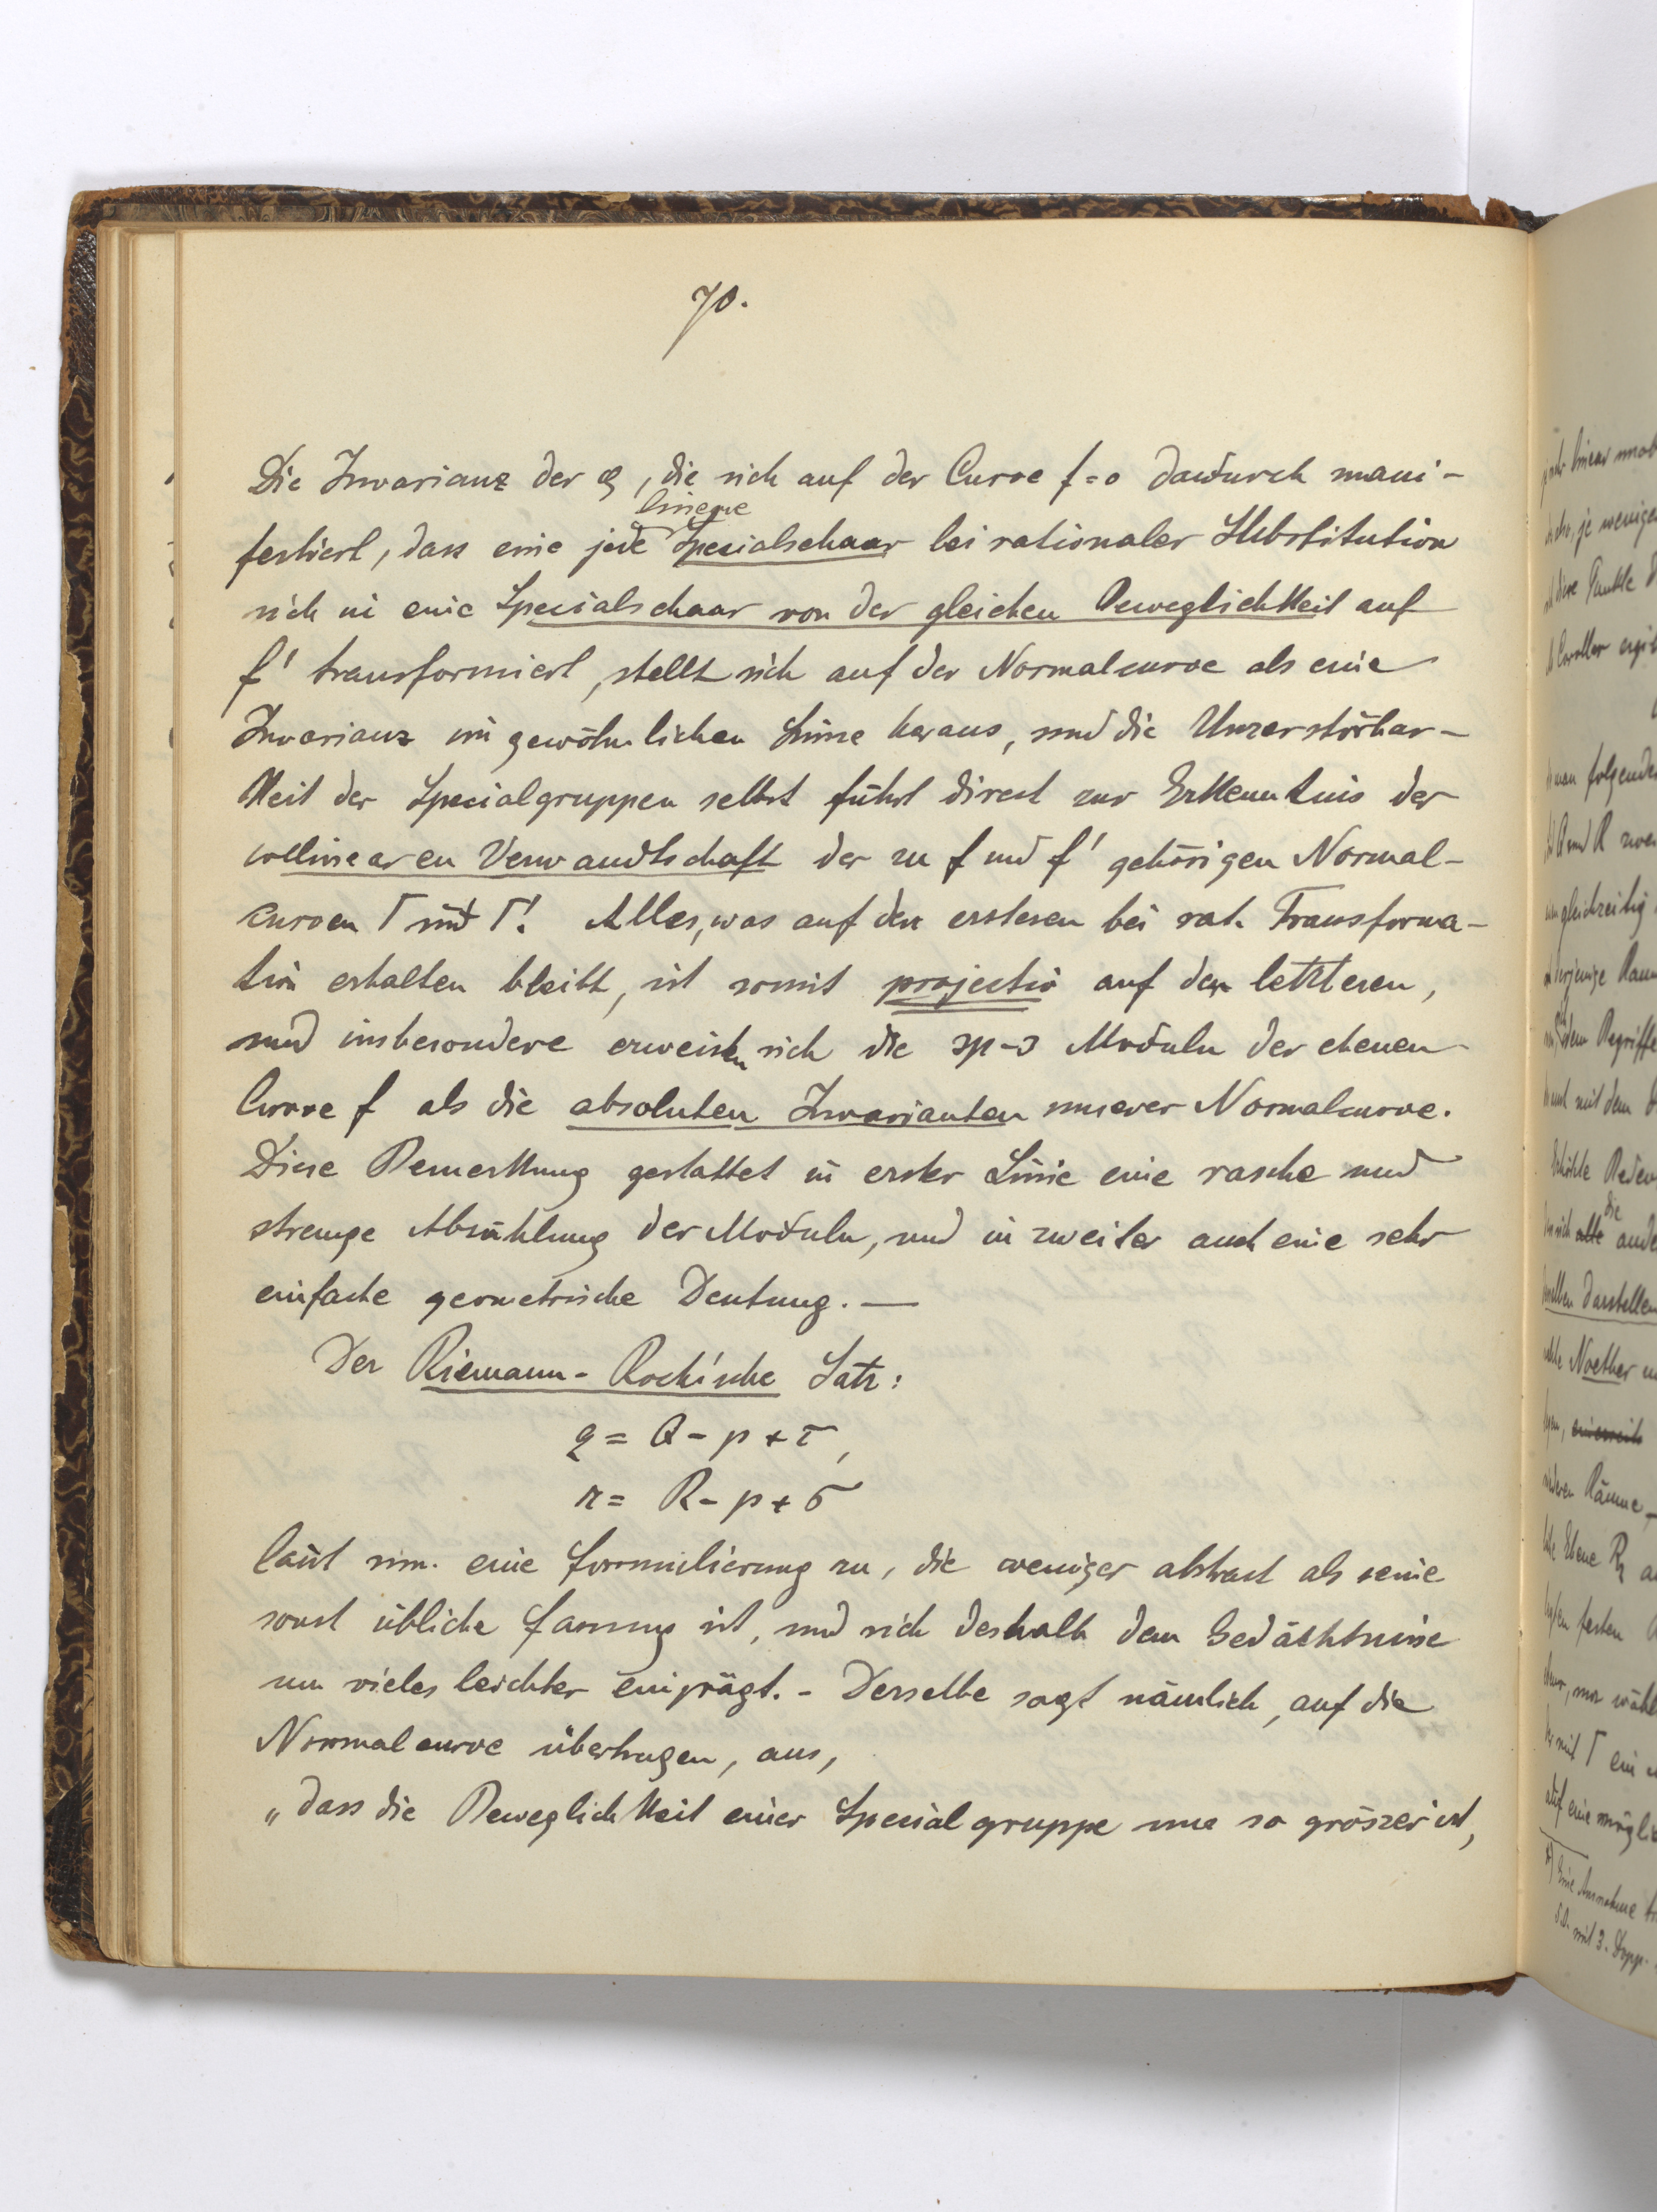 70.
Die Invarianz der φ, die sich auf der Curve f=o dadurch mani-
lineare
festiert, dass eine jede Specialschaar bei rationaler Substitution
sich in eine Specialschaar von der gleichen Beweglichkeit auf
f' transformiert, stellt sich auf der Normalcurve als eine
Invarianz im gewöhnlichen Sinne heraus, und die Unzerstörbar-
keit der Specialgruppen selbst führt direct zur Erkenntnis der
collinearen Verwandtschaft der zu f und f' gehörigen Normal-
curven Γ und Γ'. Alles, was auf den ersteren bei rat. Transforma-
tion erhalten bleibt, ist somit projectiv auf den letzteren,
und insbesondere erweisen sich die 3p-3 Moduln der ebenen
Curve f als die absoluten Invarianten unserer Normalcurve.
Diese Bemerkung gestattet in erster Linie eine rasche und
strenge Abzählung der Moduln, und in zweiter auch eine sehr
einfache geometrische Deutung. —
Der Riemann-Roch'sche Satz:
q = Q - p + τ,
r = R - p + σ
lässt nun eine Formulierung zu, die weniger abstract als seine
sonst übliche Fassung ist, und sich deshalb dem Gedächtnisse
um vieles leichter einprägt. - Derselbe sagt nämlich, auf die
Normalcurve übertragen, aus,
„dass die Beweglichkeit einer Specialgruppe um so grösser ist,
je weniger
Punkte
man folgende
gleichzeitig
Begriffe
die
alle
Darstellen
Noether
Räume,
Ebene
festen
mit Γ ein
auf eine
*) Eine Ausnahme
mit 3.